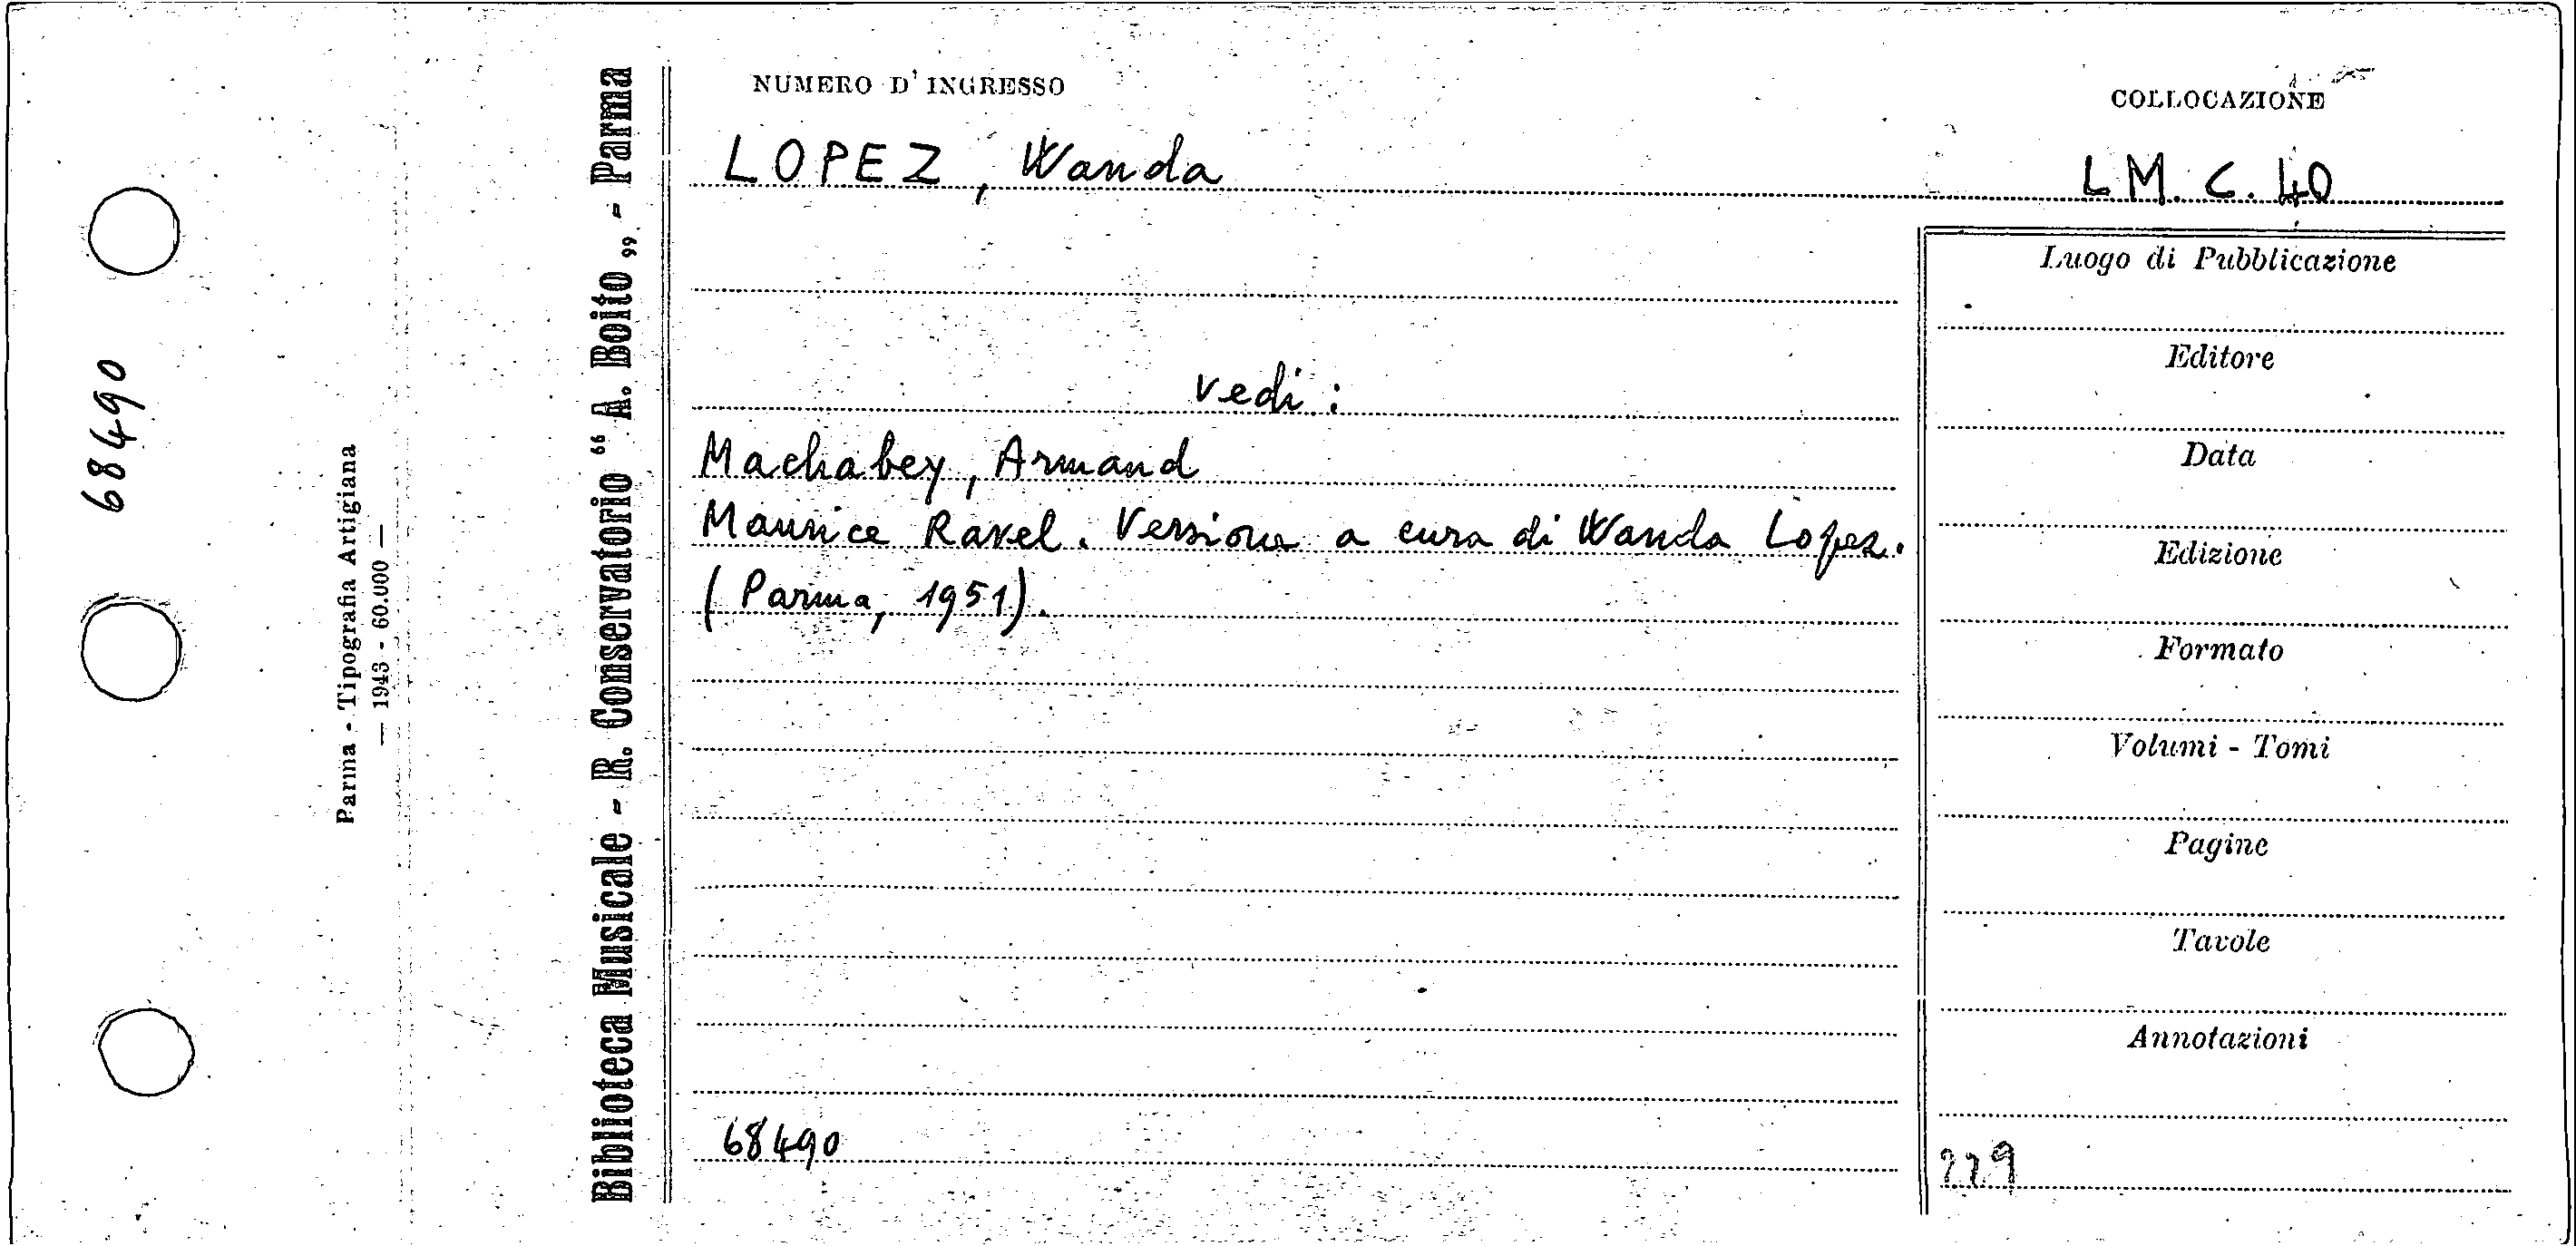 68490
Parma - Tipografia Artigiana
— 1943 - 60.000 —
Biblioteca Musicale - R. Conservatorio “ A. Boito „ - Parma
NUMERO D' INGRESSO
COLLOCAZIONE
LOPEZ, Wanda
LM. C. 40
vedi:
Machabey, Armand
Maurice Ravel. Versione a cura di Wanda Lopez.
(Parma, 1951).
68490
Luogo di Pubblicazione
Editore
Data
Edizione
Formato
Volumi - Tomi
Pagine
Tavole
Annotazioni